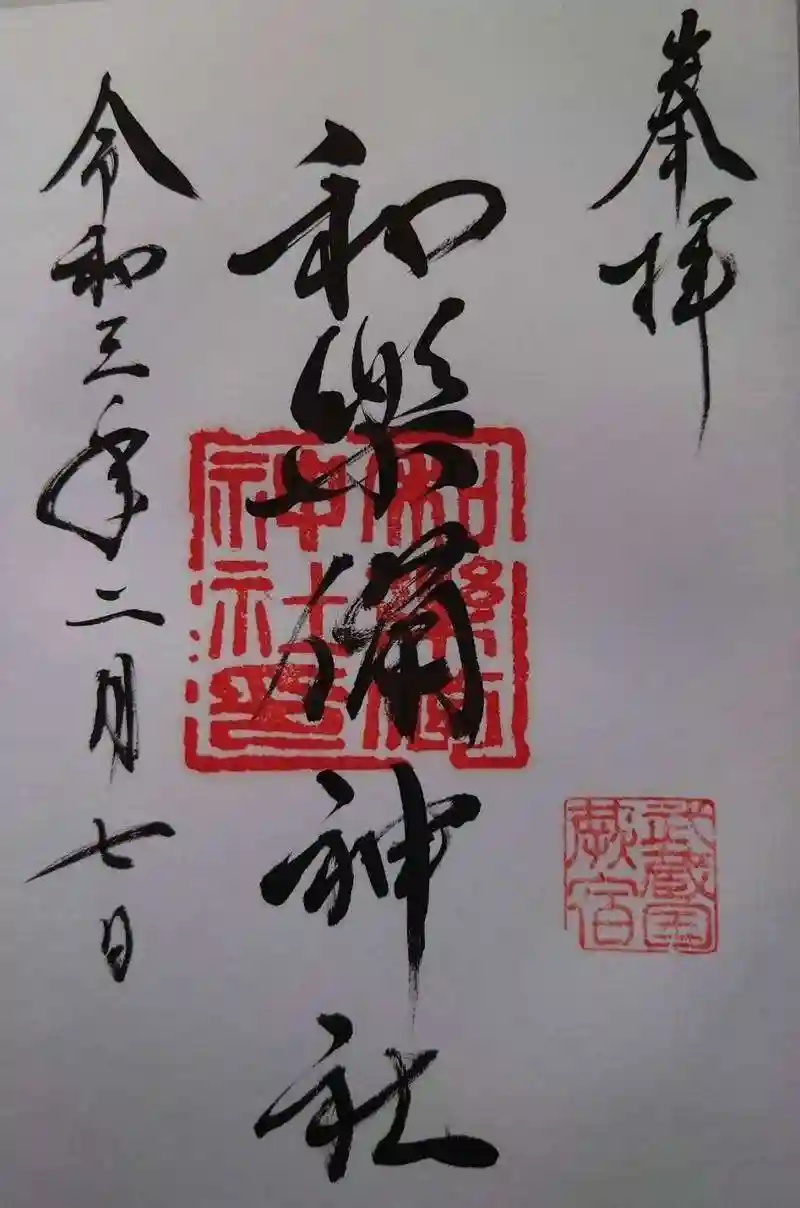 奉拝
武蔵国
蕨宿
和樂備神社
和樂備
神社印
令和三年二月七日